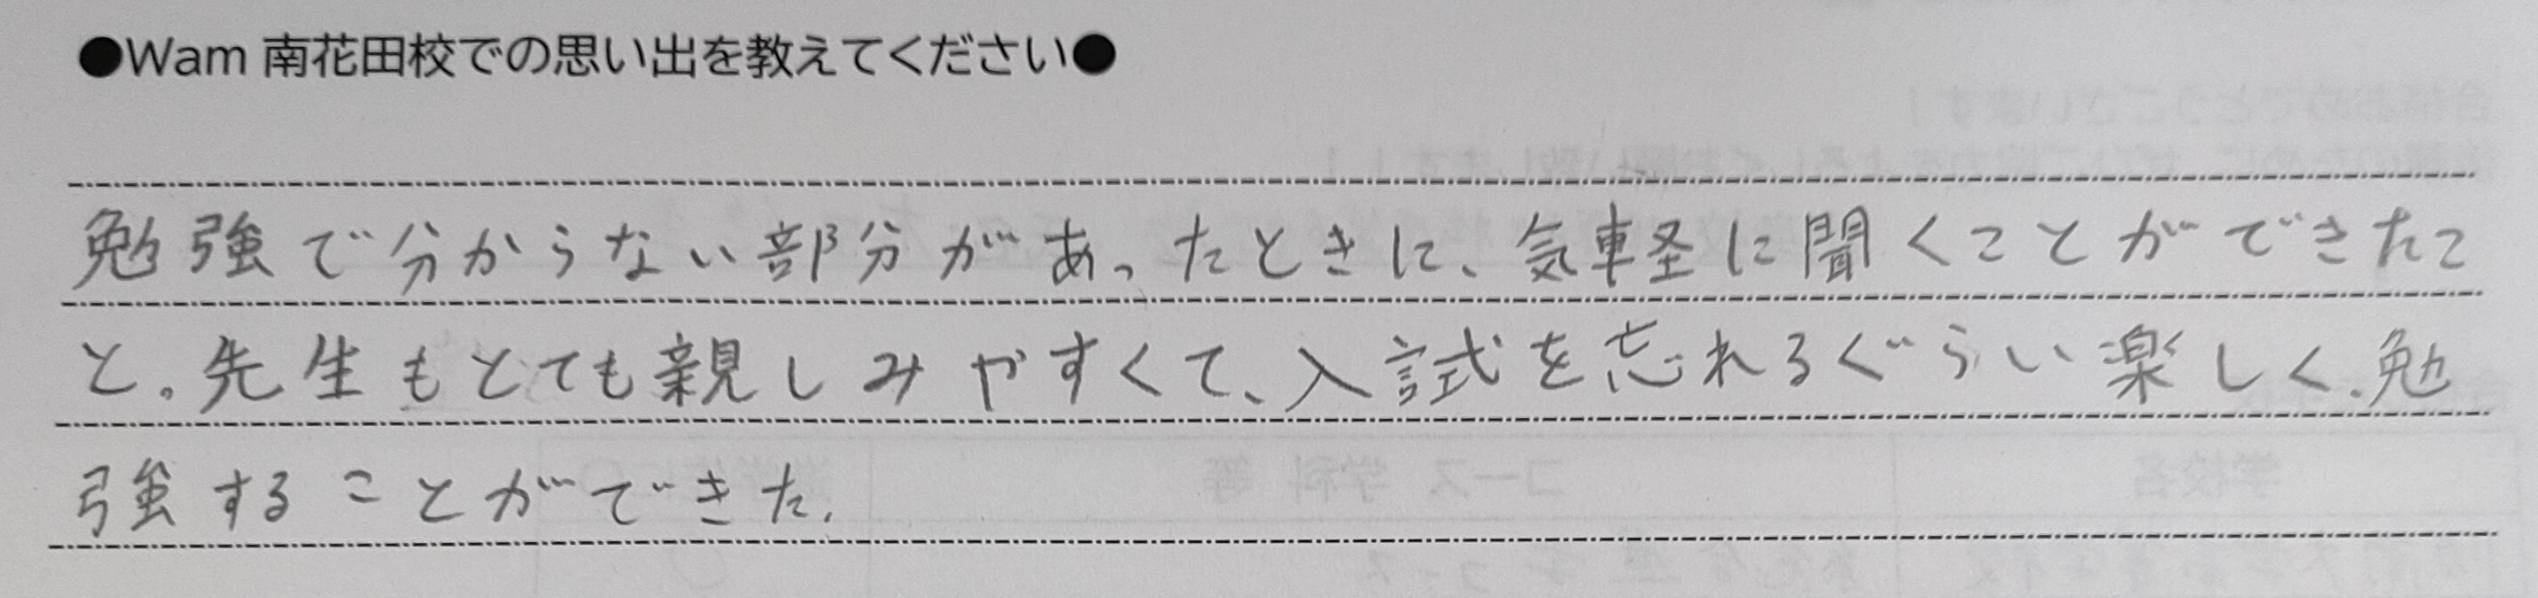 ●Wam 南花田校での思い出を教えてください●
勉強で分からない部分があったときに、気軽に聞くことができたこ
と。先生もとても親しみやすくて、入試を忘れるぐらい楽しく、勉
強することができた。